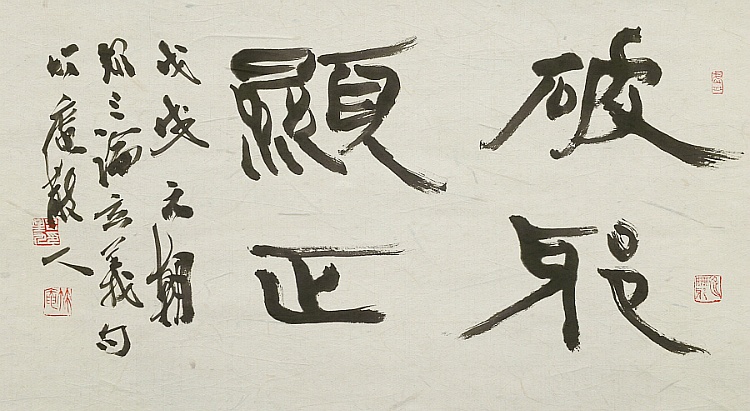 破邪
顯正
戊戌元朝
三論玄義句
竹庵散人